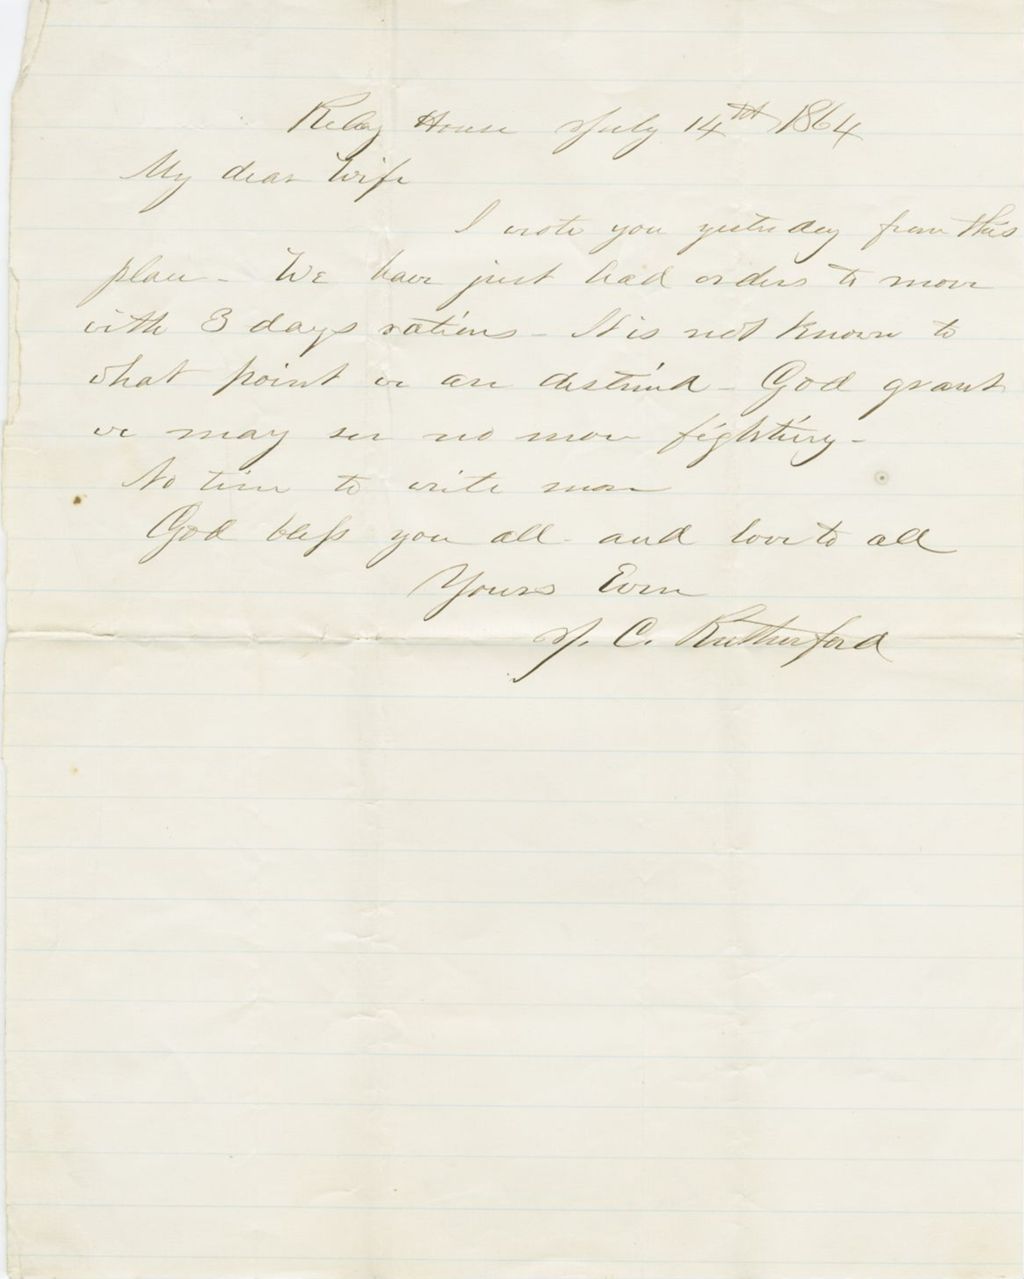 Relay House July 14th 1864
My dear Wife
I wrote you yesterday from this
place - We have just had orders to move
with 3 days rations - It is not known to
what point we are destined - God grant
we may see no more fighting -
No time to write more
God bless you all - and love to all
Yours Ever
J. C. Rutherford